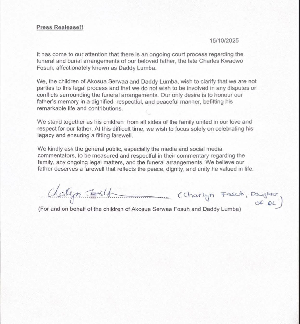 Press Realease!!
15/10/2025
It has come to our attention that there is an ongoing court process regarding the
funeral and burial arrangements of our beloved father, the late Charles Kwadwo
Fosuh, affectionately known as Daddy Lumba.
We, the children of Akosua Serwaa and Daddy Lumba, wish to clarify that we are not
parties to this legal process and that we do not wish to be involved in any disputes or
conflicts surrounding the funeral arrangements. Our only desire is to honour our
father's memory in a dignified, respectful, and peaceful manner, befitting his
remarkable life and contributions.
We stand together as his children, from all sides of the family united in our love and
respect for our father. At this difficult time, we wish to focus solely on celebrating his
legacy and ensuring a fitting farewell.
We kindly ask the general public, especially the media and social media
commentators, to be measured and respectful in their commentary regarding the
family, any ongoing legal matters, and the funeral arrangements. We believe our
father deserves a farewell that reflects the peace, dignity, and unity he valued in life.
(Charlyn Fosuh, Daughter
of DL)
(For and on behalf of the children of Akosua Serwaa Fosuh and Daddy Lumba)